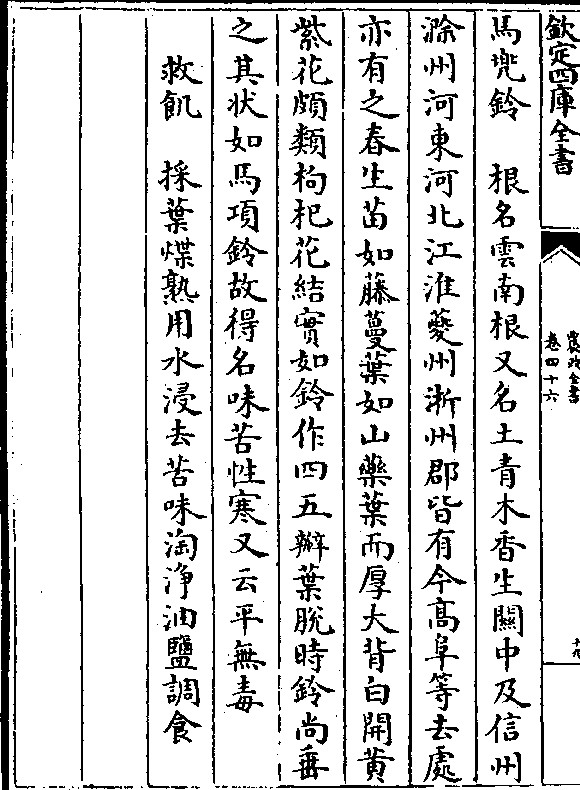 欽定四庫全書
農政全書
卷四十六
馬兜鈴　根名雲南根又名土青木香生關中及信州
滁州河東河北江淮夔州浙州郡皆有今髙阜等去處
亦有之春生苗如藤蔓葉如山藥葉而厚大背白開黄
紫花頗類枸杞花結實如鈴作四五瓣葉脫時鈴尚垂
之其狀如馬項鈴故得名味苦性寒又云平無毒
救飢　採葉煠熟用水浸去苦味淘浄油鹽調食